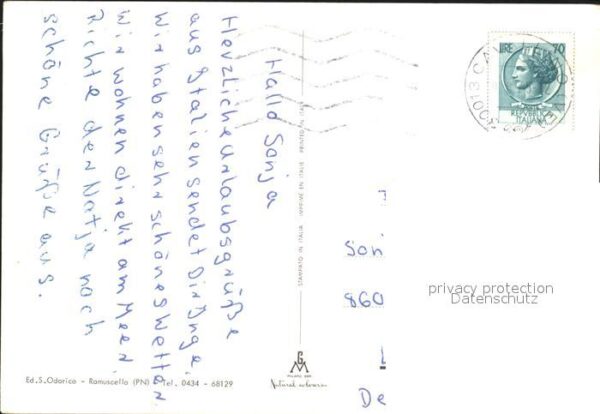 Hallo Sonja
Herzliche Urlaubsgrüße
aus Italien sendet Dir Inge.
Wir haben sehr schönes Wetter.
Wir wohnen direkt am Meer.
Richte der Natja noch
schöne Grüße aus.
LIRE 70
REPVBBLICA
ITALIANA
Son
860
De
privacy protection
Datenschutz
STAMPATO IN ITALIA IMPRIMÉ EN ITALIE PRINTED IN ITALY
Ed. S. Odorico - Ramuscello (PN) - Tel. 0434 - 68129
GM
Natural colour